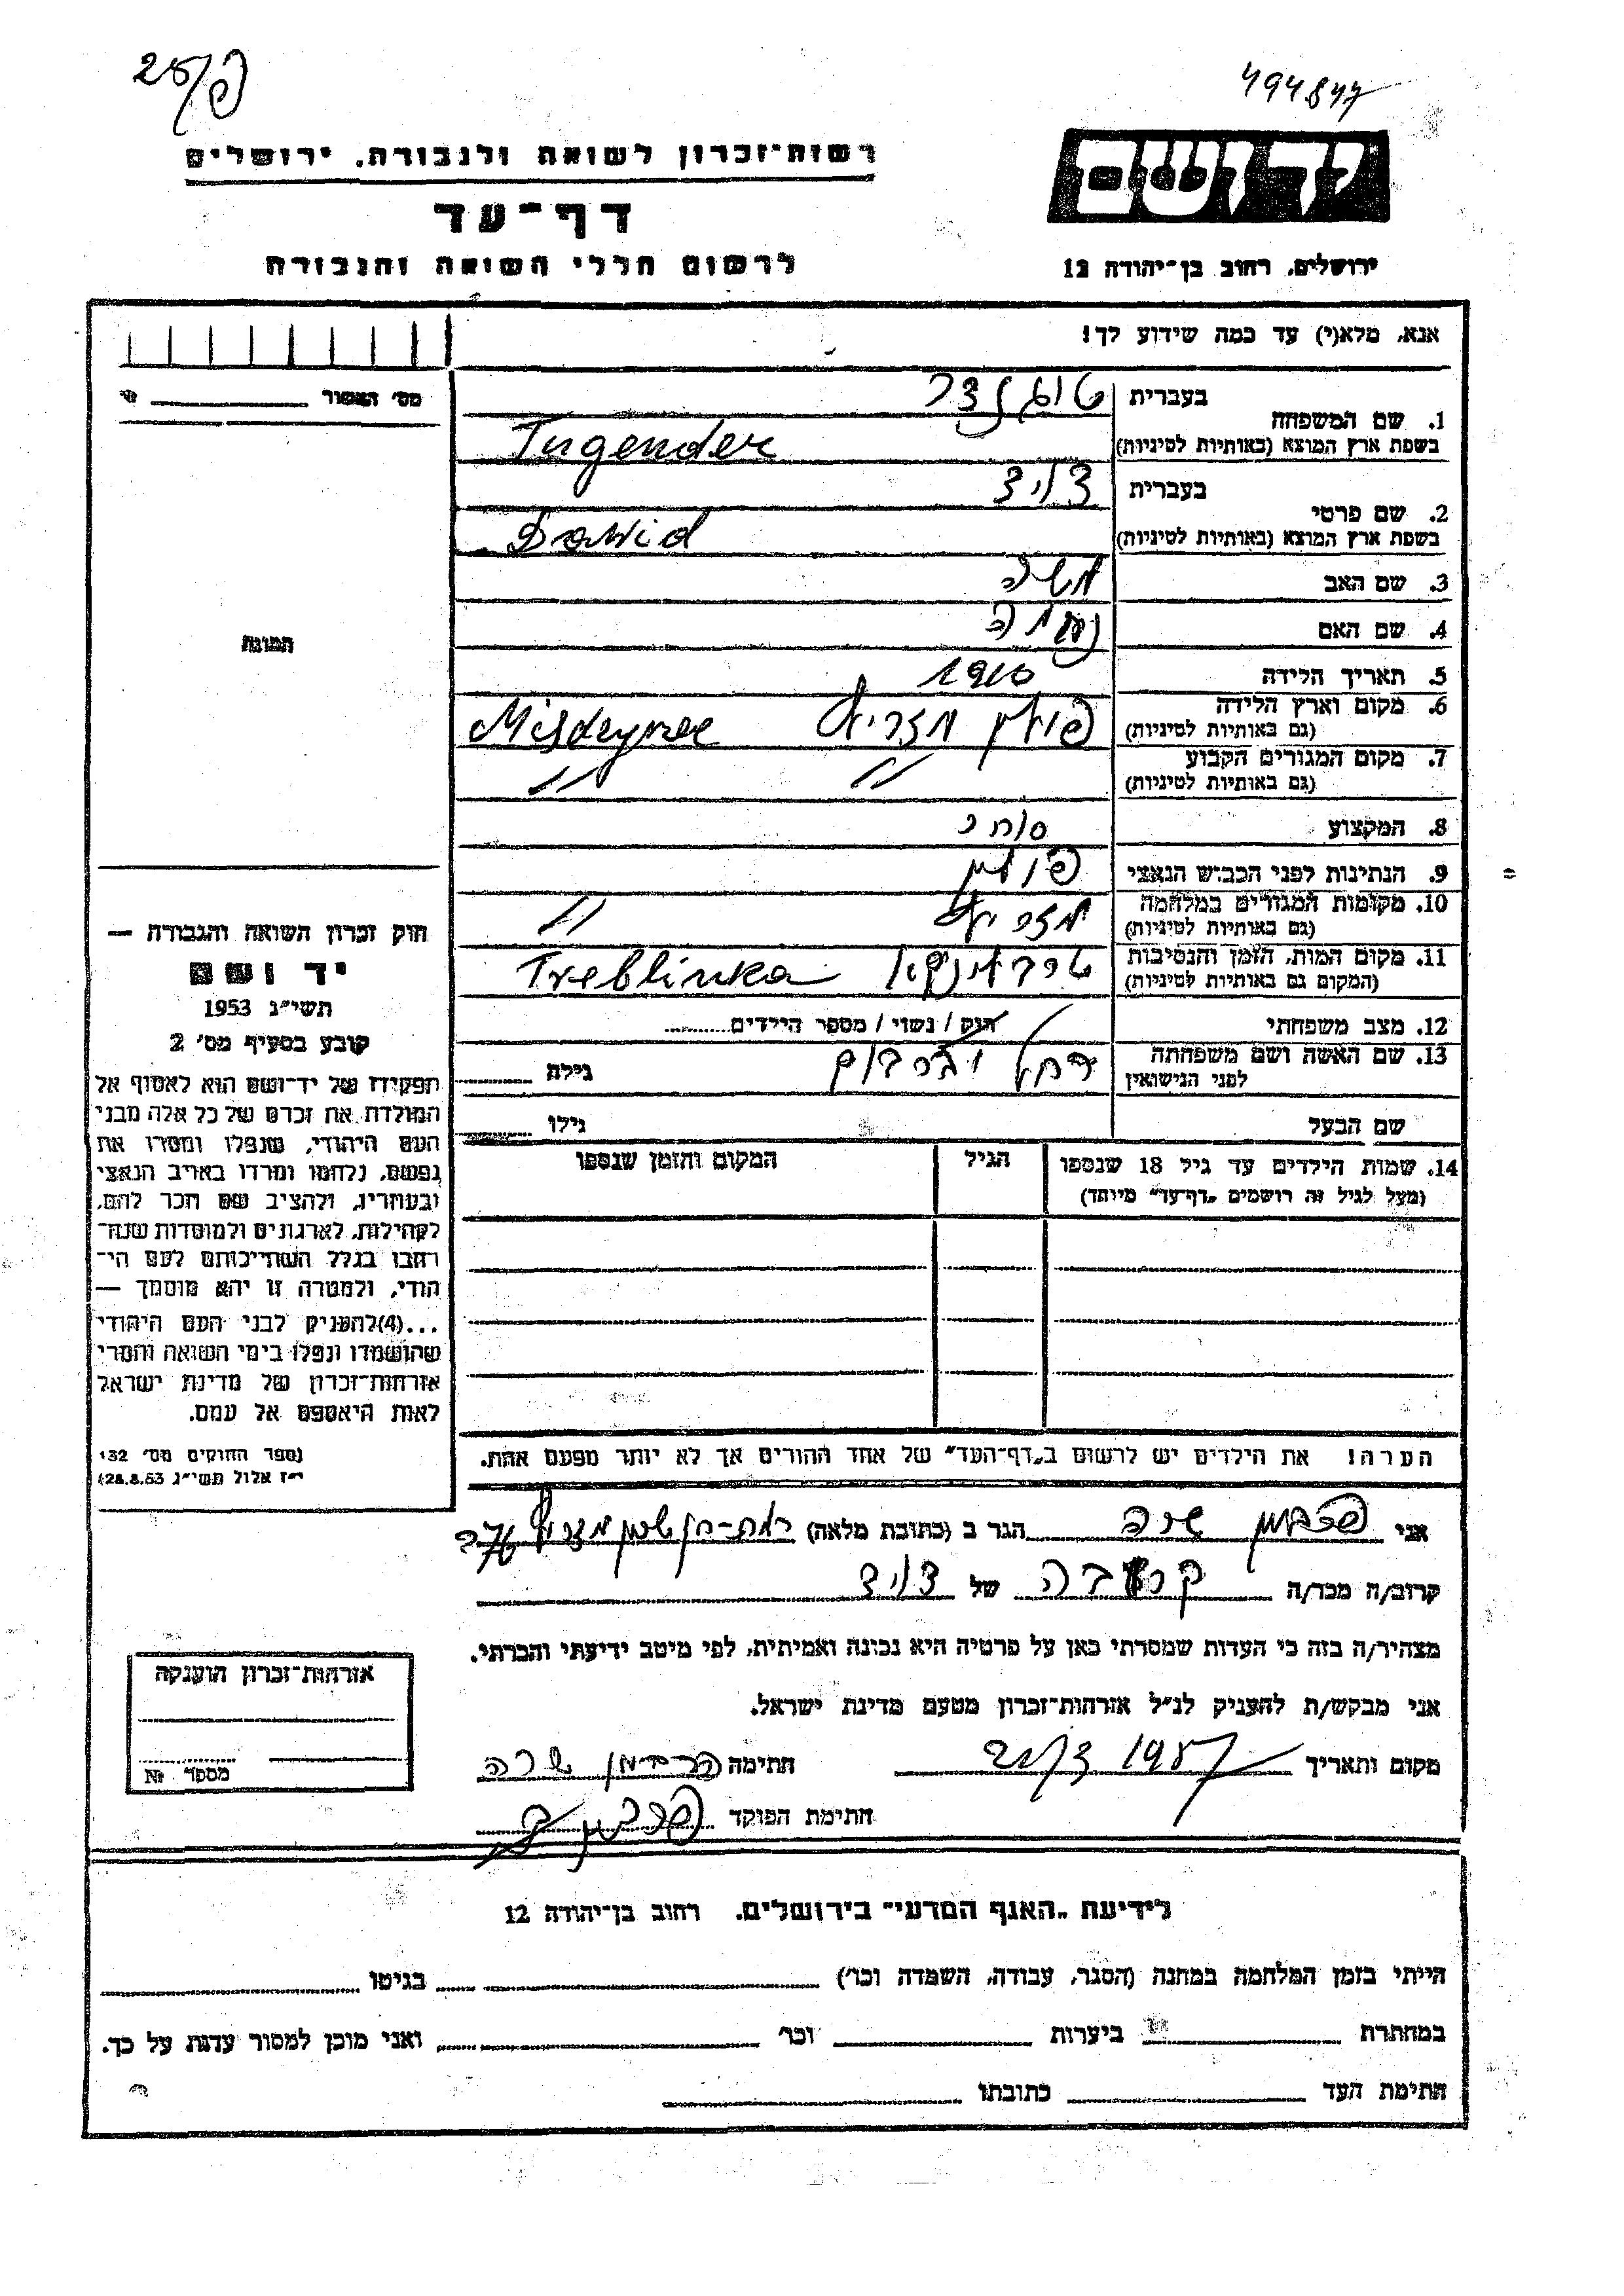 25/פ
494847
רשות־זכרון לשואה ולגבורה, ירושלים
דף־עד
לרשום חללי השואה והגבורה
ידושם
ירושלים, רחוב בן־יהודה 12
אנא, מלא(י) עד כמה שידוע לך!
מס' האשור
1. שם המשפחה
בעברית טוגנדר
בשפת ארץ המוצא (באותיות לטיניות) Tugender
2. שם פרטי
בעברית דויד
בשפת ארץ המוצא (באותיות לטיניות) Dawid
3. שם האב משה
4. שם האם נעמה
5. תאריך הלידה 1910
6. מקום וארץ הלידה פולין מזריץ
(גם באותיות לטיניות)
7. מקום המגורים הקבוע " "
(גם באותיות לטיניות)
8. המקצוע סוחר
9. הנתינות לפני הכבוש הנאצי פולין
10. מקומות המגורים במלחמה מזריץ "
(גם באותיות לטיניות)
11. מקום המות, הזמן והנסיבות טרבלינקא Treblinka
(המקום גם באותיות לטיניות)
12. מצב משפחתי רווק / נשוי / מספר הילדים
13. שם האשה ושם משפחתה רחל
לפני הנישואין
גילה
שם הבעל
גילו
14. שמות הילדים עד גיל 18 שנספו
(מעל לגיל זה רושמים „דף־עד" מיוחד)
הגיל
המקום והזמן שנספו
הערה! את הילדים יש לרשום ב„דף־העד" של אחד ההורים אך לא יותר מפעם אחת.
התמונה
חוק זכרון השואה והגבורה —
יד ושם
תשי"ג 1953
קובע בסעיף מס' 2
תפקידו של יד־ושם הוא לאסוף אל
המולדת את זכרם של כל אלה מבני
העם היהודי, שנפלו ומסרו את
נפשם, נלחמו ומרדו באויב הנאצי
ובעוזריו, ולהציב שם וזכר להם,
לקהילות, לארגונים ולמוסדות שנח־
רבו בגלל השתייכותם לעם הי־
הודי, ולמטרה זו יהא מוסמך —
...(4)להעניק לבני העם היהודי
שהושמדו ונפלו בימי השואה והמרי
אזרחות־זכרון של מדינת ישראל
לאות היאספם אל עמם.
(ספר החוקים מס' 132
י"ז אלול תשי"ג 28.8.53)
אני שרה הגר ב (כתובת מלאה) רמת-גן שיכון מזריץ
קרוב/ה מכר/ה קרובה של דויד
מצהיר/ה בזה כי העדות שמסרתי כאן על פרטיה היא נכונה ואמיתית, לפי מיטב ידיעתי והכרתי.
אני מבקש/ת להעניק לנ"ל אזרחות־זכרון מטעם מדינת ישראל.
מקום ותאריך 1957 חתימה שרה
חתימת הפוקד
אזרחות־זכרון הוענקה
מספר №
לידיעת „האגף המדעי" בירושלים, רחוב בן־יהודה 12
הייתי בזמן המלחמה במחנה (הסגר, עבודה, השמדה וכו') בגיטו
במחתרת ביערות וכו' ואני מוכן למסור עדות על כך.
חתימת העד כתובתו